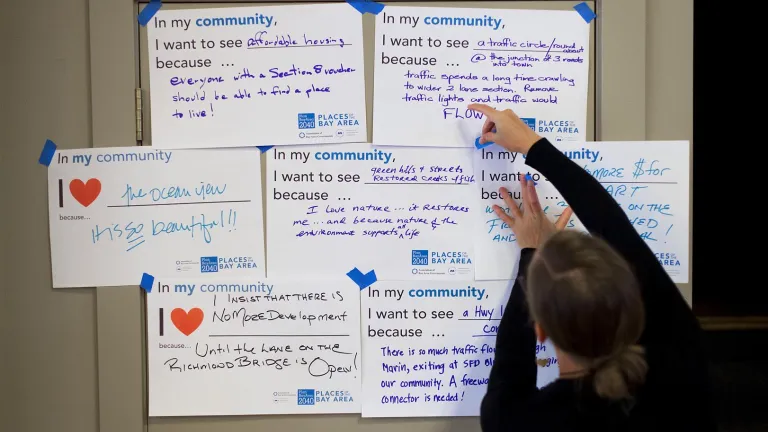 In my community,
I want to see affordable housing
because ...
everyone with a Section 8 voucher
should be able to find a place
to live!
Plan Bay Area 2040
PLACES OF THE
BAY AREA
In my community,
I want to see a traffic circle/round about
because ...
@ the junction of 3 roads
into town
traffic spends a long time crawling
to wider 2 lane section. Remove
traffic lights and traffic would
FLOW
PLACES OF THE
BAY AREA
In my community
I ♥ the ocean view
because...
it is so beautiful!!
PLACES OF THE
BAY AREA
In my community,
I want to see green hills & streets
Restored creeks & fish
because ...
I love nature ... it restores
me ... and because nature & the
environment supports all life
PLACES OF THE
BAY AREA
community,
I want to see MORE $ for
ART
because
ON THE
AND
!
BAY AREA
In my community
I ♥ I INSIST THAT THERE IS
NO MORE DEVELOPMENT
because...
UNTIL THE LANE ON THE
RICHMOND BRIDGE IS OPEN!
Plan Bay Area 2040
PLACES OF THE
BAY AREA
In my community,
I want to see a Hwy
because ...
There is so much traffic
Marin, exiting at SFD
our community. A freeway
connector is needed!